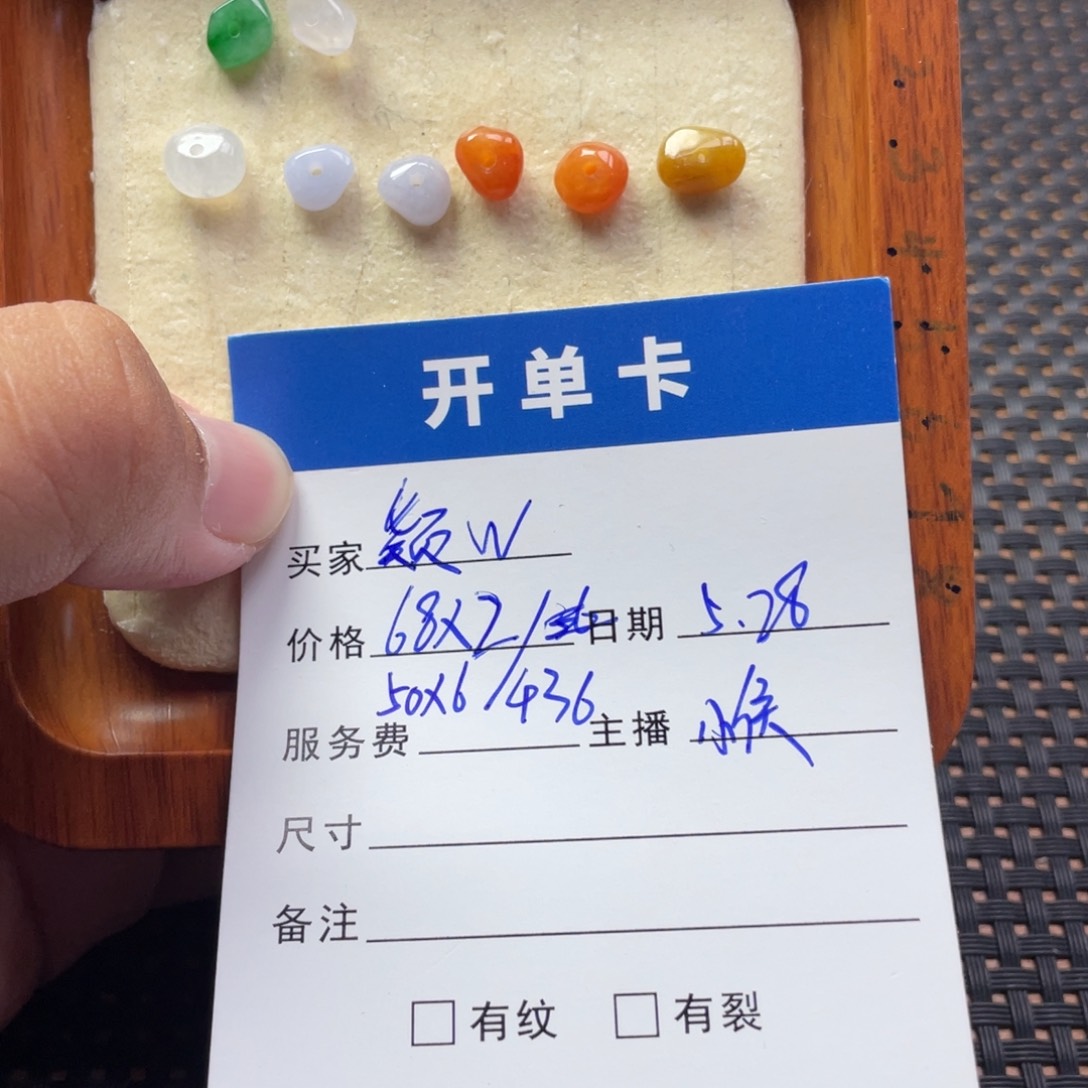 开单卡
买家 颖W
价格 68X2/ 日期 5.28
50X6/436
服务费 主播 小侯
尺寸
备注
□有纹 □有裂